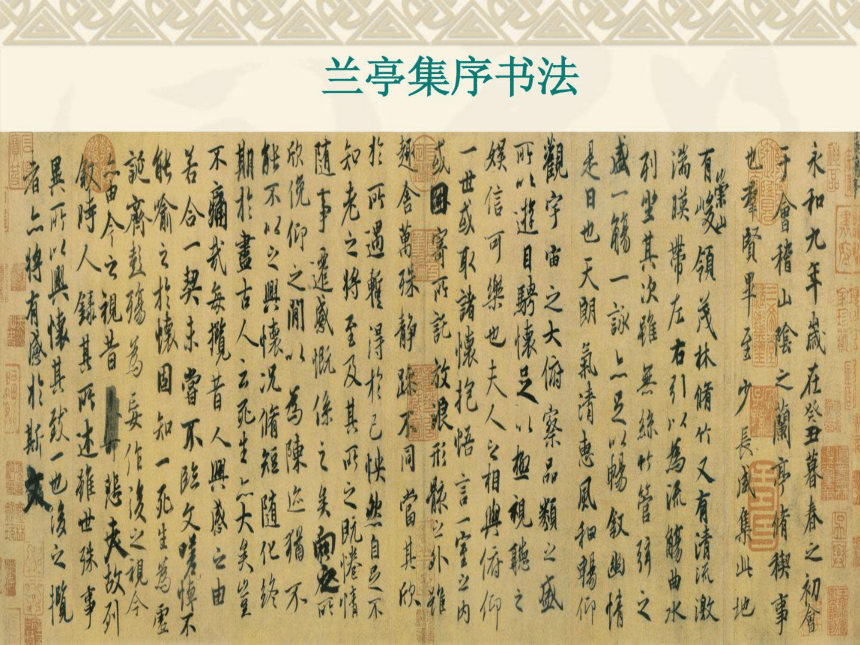 兰亭集序书法
永和九年歲在癸丑暮春之初會
于會稽山陰之蘭亭脩稧事
也羣賢畢至少長咸集此地
有崇山峻領茂林脩竹又有清流激
湍暎帶左右引以為流觴曲水
列坐其次雖無絲竹管弦之
盛一觴一詠亦足以暢敘幽情
是日也天朗氣清惠風和暢仰
觀宇宙之大俯察品類之盛
所以遊目騁懷足以極視聽之
娛信可樂也夫人之相與俯仰
一世或取諸懷抱悟言一室之內
或因寄所託放浪形骸之外雖
趣舍萬殊靜躁不同當其欣
於所遇暫得於己怏然自足不
知老之將至及其所之既惓情
隨事遷感慨係之矣向之所
欣俛仰之閒以為陳迹猶不
能不以之興懷況脩短隨化終
期於盡古人云死生亦大矣豈
不痛哉每攬昔人興感之由
若合一契未嘗不臨文嗟悼不
能喻之於懷固知一死生為虛
誕齊彭殤為妄作後之視今
亦由今之視昔悲夫故列
敘時人錄其所述雖世殊事
異所以興懷其致一也後之攬
者亦將有感於斯文